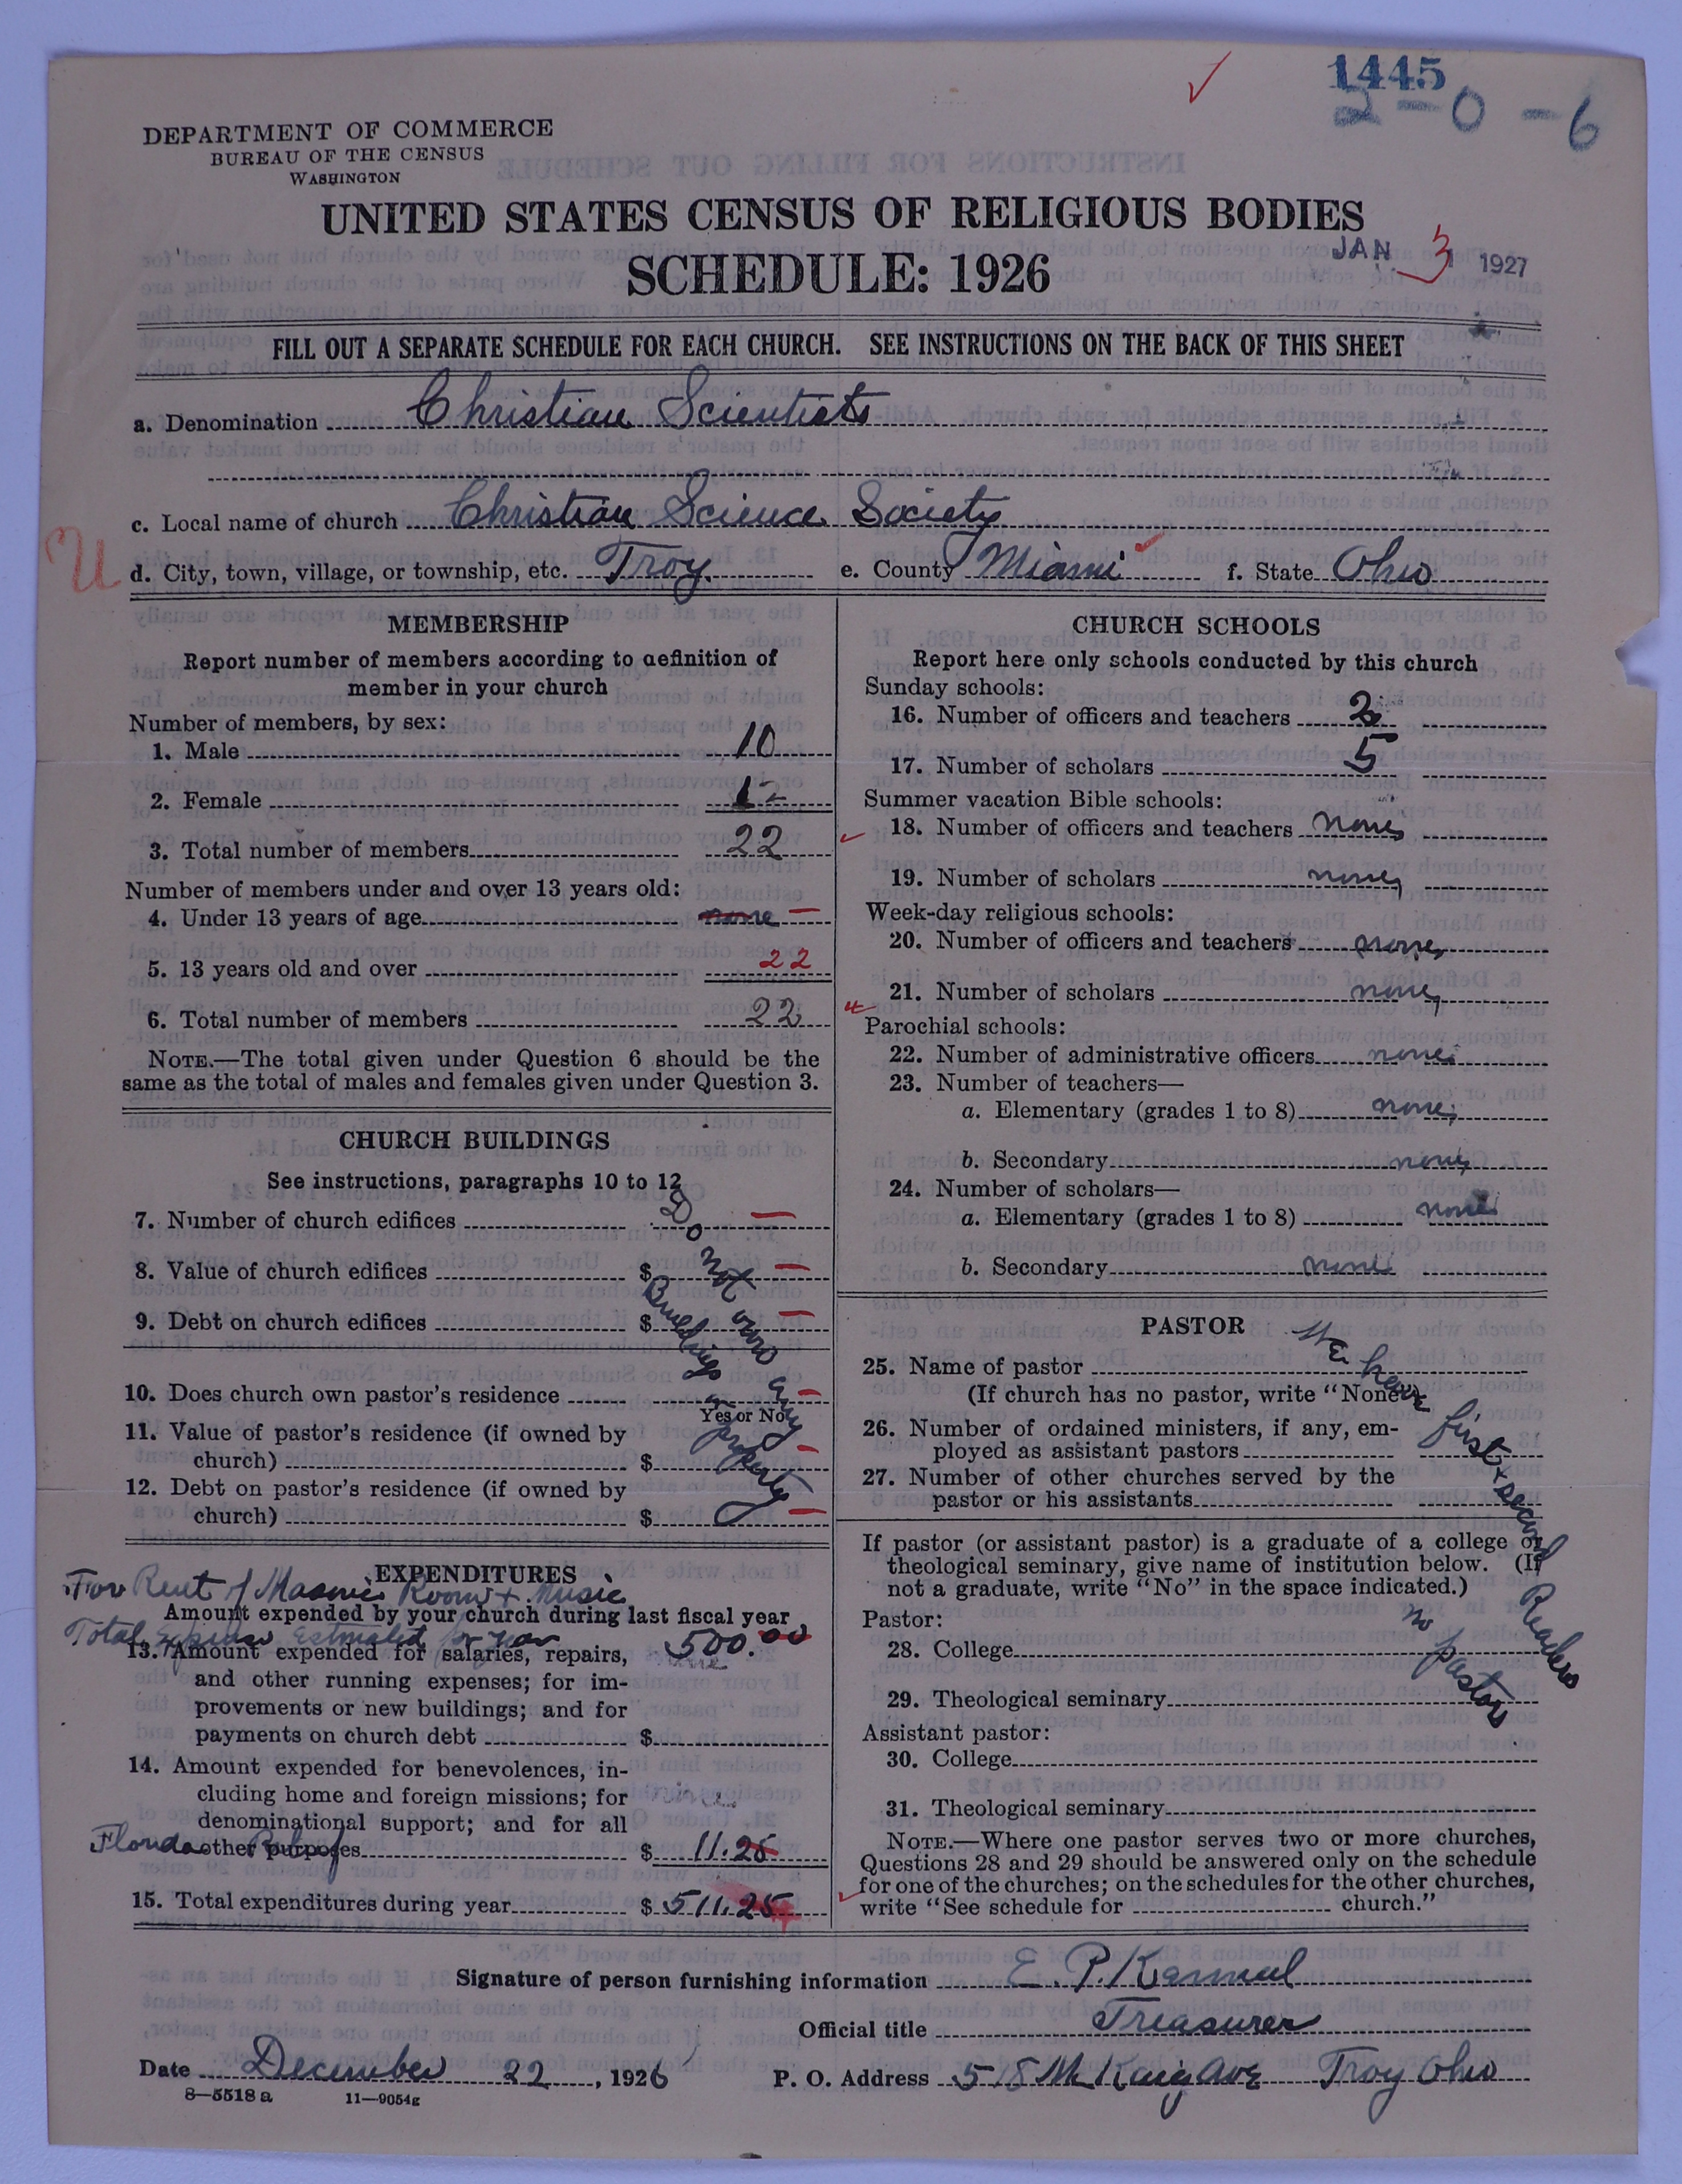 1445
2-0-6
DEPARTMENT OF COMMERCE
BUREAU OF THE CENSUS
WASHINGTON
UNITED STATES CENSUS OF RELIGIOUS BODIES
SCHEDULE: 1926
JAN 3 1927
FILL OUT A SEPARATE SCHEDULE FOR EACH CHURCH. SEE INSTRUCTIONS ON THE BACK OF THIS SHEET
a. Denomination Christian Scientists
c. Local name of church Christian Science Society
U
d. City, town, village, or township, etc. Troy. e. County Miami f. State Ohio
MEMBERSHIP
Report number of members according to definition of
member in your church
Number of members, by sex:
1. Male 10
2. Female 12
3. Total number of members 22
Number of members under and over 13 years old:
4. Under 13 years of age none –
5. 13 years old and over 22
6. Total number of members 22
NOTE.—The total given under Question 6 should be the
same as the total of males and females given under Question 3.
CHURCH BUILDINGS
See instructions, paragraphs 10 to 12
7. Number of church edifices –
8. Value of church edifices $ –
9. Debt on church edifices $ –
10. Does church own pastor's residence –
Yes or No
11. Value of pastor's residence (if owned by
church) $ –
12. Debt on pastor's residence (if owned by
church) $ –
Do not own any
Buildings or property
EXPENDITURES
For Rent of Masonic Room + Music
Amount expended by your church during last fiscal year
Total Expense Estimated for year 500.00
13. Amount expended for salaries, repairs,
and other running expenses; for im-
provements or new buildings; and for
payments on church debt $
14. Amount expended for benevolences, in-
cluding home and foreign missions; for
denominational support; and for all
Florida Relief
other purposes $ 11.25
15. Total expenditures during year $ 511.25
CHURCH SCHOOLS
Report here only schools conducted by this church
Sunday schools:
16. Number of officers and teachers 2
17. Number of scholars 5
Summer vacation Bible schools:
18. Number of officers and teachers none
19. Number of scholars none
Week-day religious schools:
20. Number of officers and teachers none
21. Number of scholars none
Parochial schools:
22. Number of administrative officers none
23. Number of teachers—
a. Elementary (grades 1 to 8) none
b. Secondary none
24. Number of scholars—
a. Elementary (grades 1 to 8) none
b. Secondary none
PASTOR
25. Name of pastor
(If church has no pastor, write "None")
26. Number of ordained ministers, if any, em-
ployed as assistant pastors
27. Number of other churches served by the
pastor or his assistants
We have first + second Readers
If pastor (or assistant pastor) is a graduate of a college or
theological seminary, give name of institution below. (If
not a graduate, write "No" in the space indicated.)
Pastor:
no pastor
28. College
29. Theological seminary
Assistant pastor:
30. College
31. Theological seminary
NOTE.—Where one pastor serves two or more churches,
Questions 28 and 29 should be answered only on the schedule
for one of the churches; on the schedules for the other churches,
write "See schedule for church."
Signature of person furnishing information E. P.
Official title Treasurer
Date December 22, 1926 P. O. Address 518 McKaig Ave Troy Ohio
8—5518 a 11—9054g